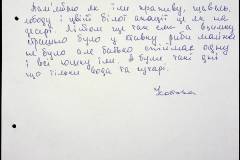 Пам'ятаю як їли кропиву, щавель,
лободу і цвіт білої акації це як на
десерт. Літом ще так сяк а взимку
страшно було у ставку риби майже
не було але батько спіймає одну
і всі юшку їли. А були такі дні
що тільки вода та сухарі.